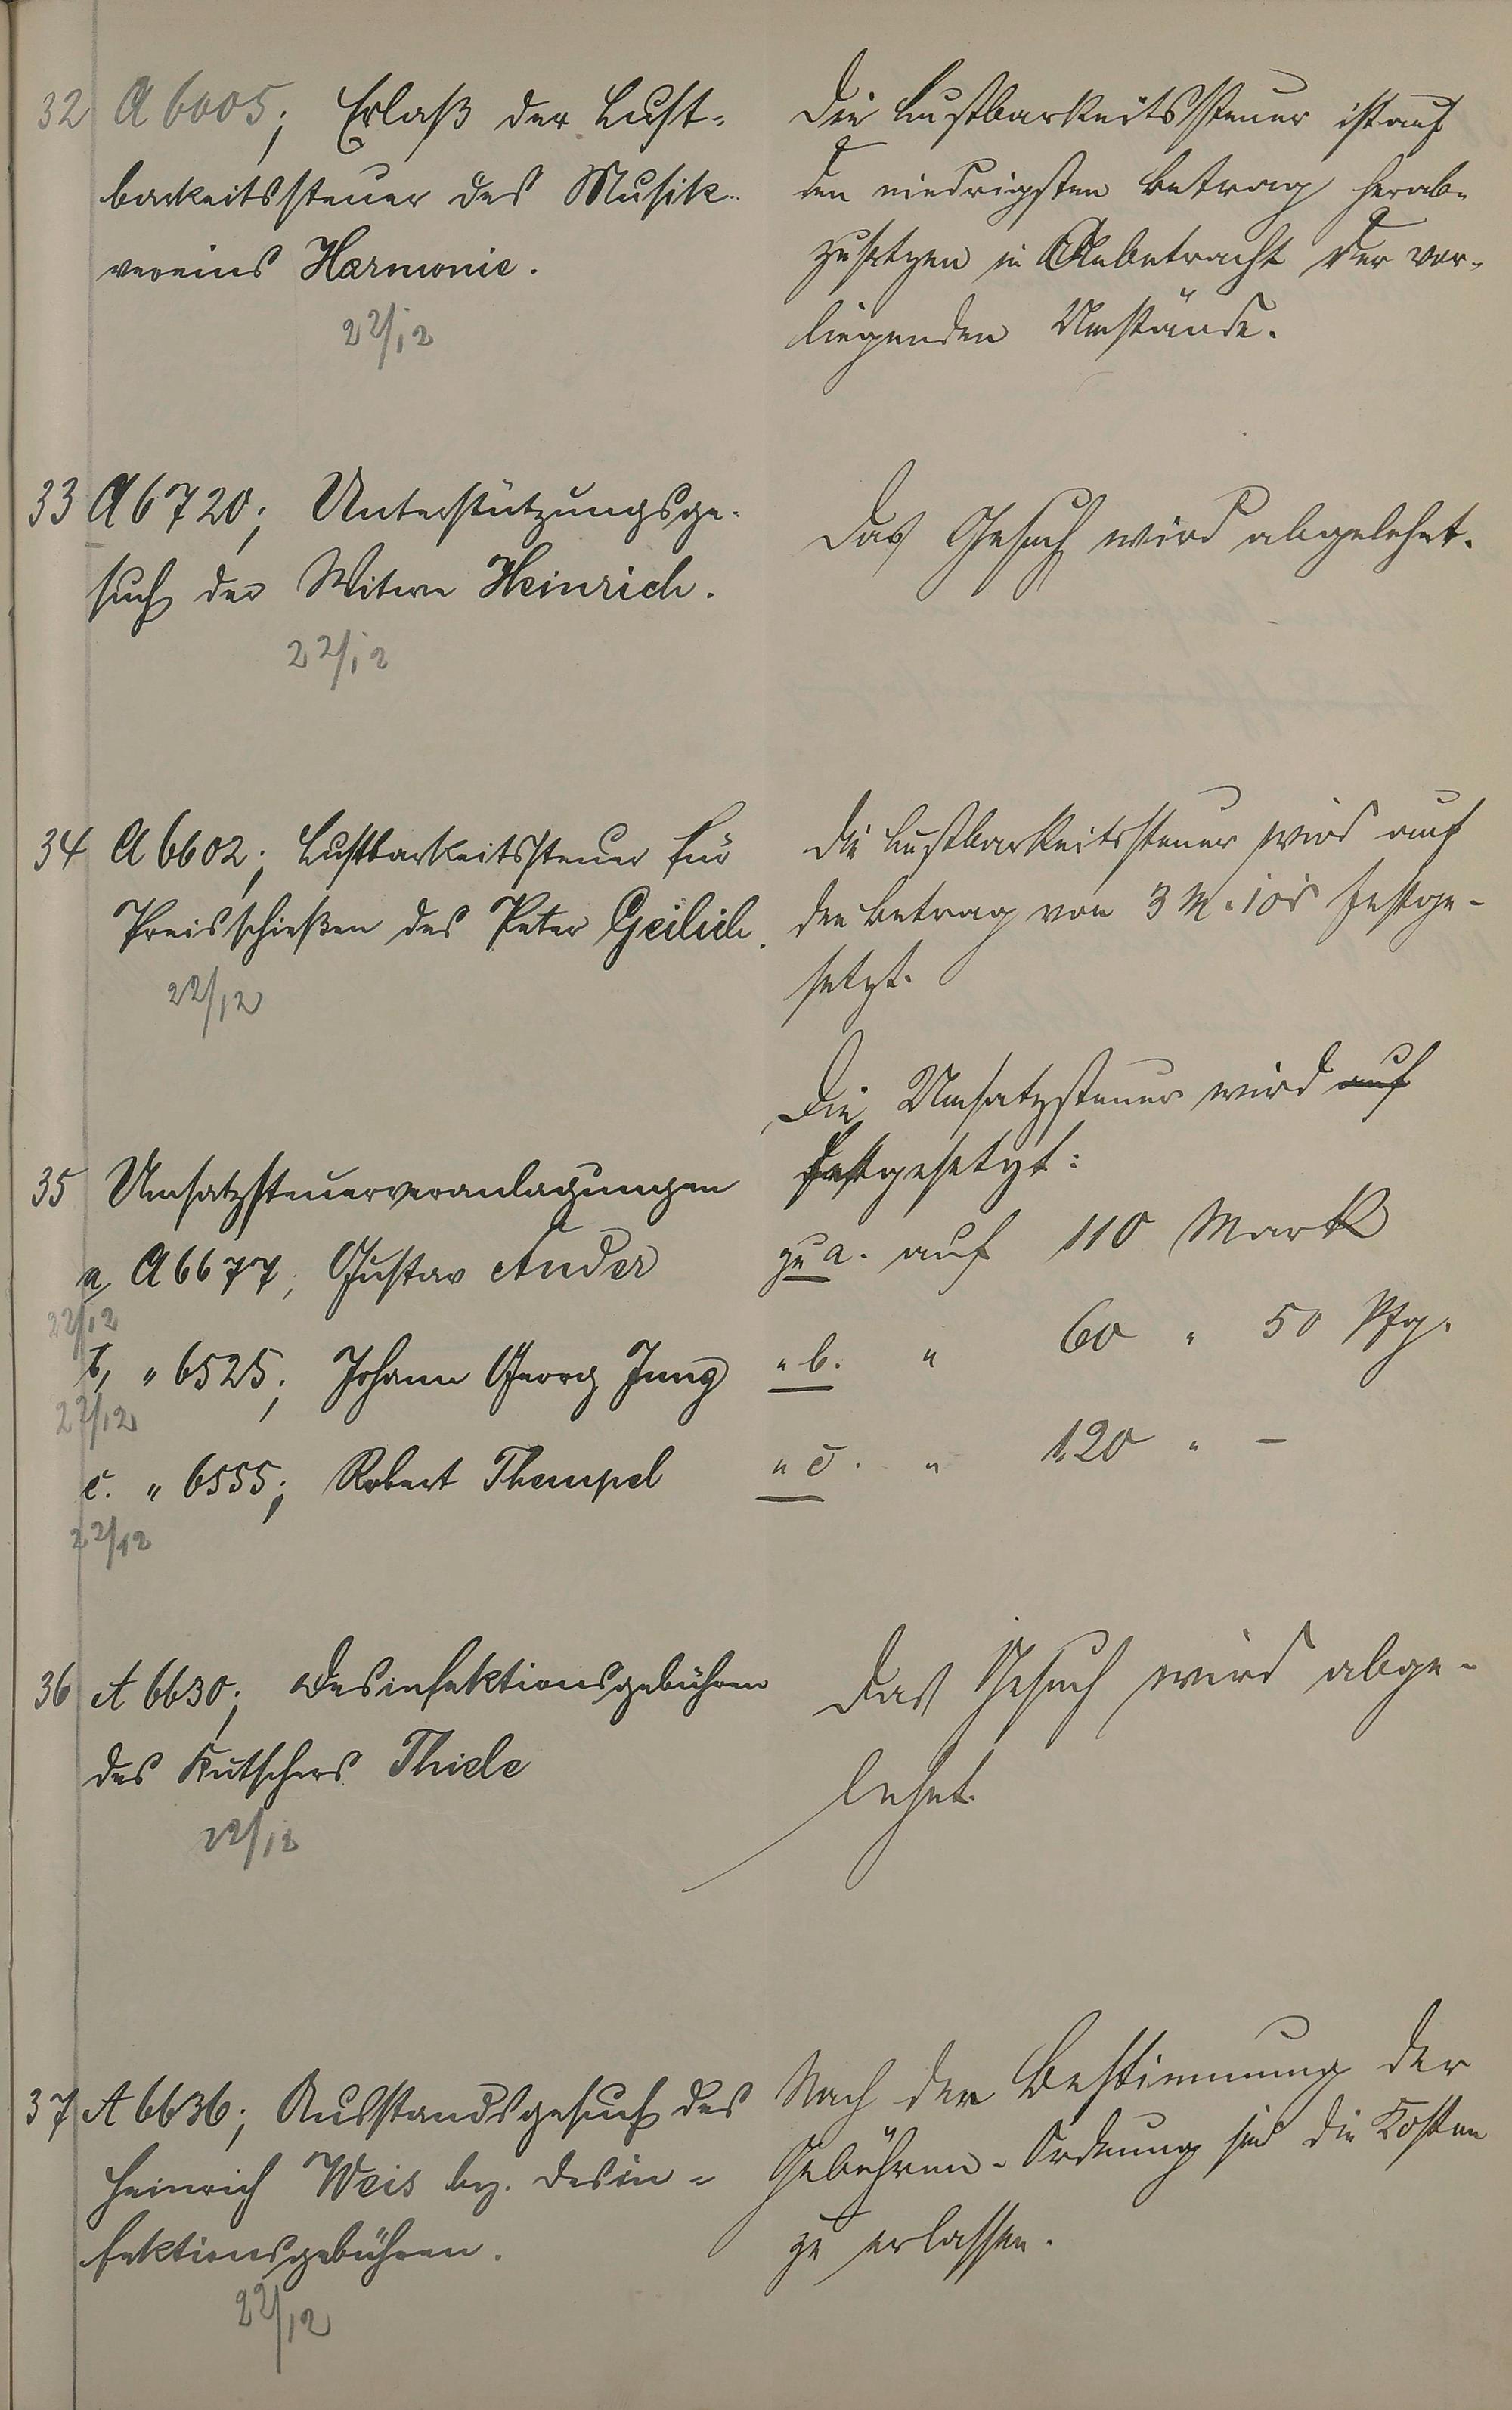 32 A 6005; Erlaß der Lust-
barkeitssteuer des Musik-
vereins Harmonie.
22/12
Die Lustbarkeitssteuer ist auf
den niedrigsten Betrag herab-
zusetzen in Anbetracht der vor-
liegenden Umstände.
33 A 6720; Unterstützungsge-
such der Witwe Heinrich.
22/12
Das Gesuch wird abgelehnt.
34 A 6602; Lustbarkeitssteuer für
Preisschießen des Peter Geilich.
22/12
Die Lustbarkeitssteuer wird auf
den Betrag von 3 M. festge-
setzt.
35 Umsatzsteuerveranlagungen
a, A 6677; Gustav Ander
22/12
b, " 6525; Johann Georg Jung
22/12
c. " 6555; Robert Thempel
22/12
Die Umsatzsteuer wird auf
festgesetzt:
zu a. auf 110 Mark
" b. " 60 " 50 Pfg.
" c. " 120 " –
36 A 6630; Desinfektionsgebühren
des Kutschers Thiele
22/12
Das Gesuch wird abge-
lehnt.
37 A 6636; Ausstandsgesuch des
Heinrich Weis bz. Desin-
fektionsgebühren.
22/12
Nach der Bestimmung der
Gebühren-Ordnung sind die Kosten
zu erlassen.